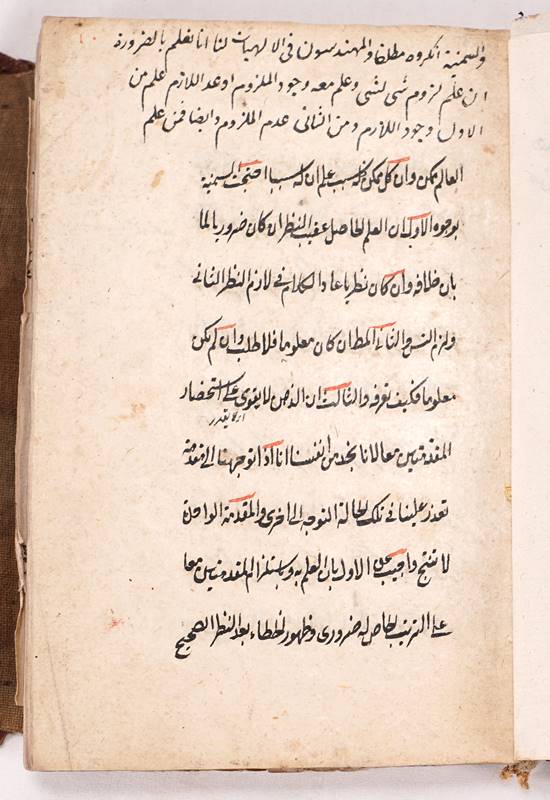 والسمنية انكروه مطلقا والمهندسون فى الالهيات لنا انا نعلم بالضرورة
ان علم لزوم شى لشى وعلم معه وجود الملزوم او عد اللازم علم من
الاول وجود اللازم ومن الثانى عدم الملزوم وايضا فمن علم
العالم ممكن وان كل ممكن فله سبب علم ان له سببا احتجت السمنية
بوجوه الاول ان العلم الحاصل عقيب النظر ان كان ضروريا لما
بان خلافه وان كان نظريا عاد الكلام فى لازم النظر الثانى
ولزم التس والثانى المط ان كان معلوما فلا طلب وان لم يكن
معلوما فكيف يعرفه والثالث ان الذهن لا يقوى على استحضار
المقدمتين معا لانا نجد من انفسنا انا اذا توجهنا الى مقدمة
تعذر علينا فى تلك الحالة التوجه الى اخرى والمقدمة الواحدة
لا تنتج واجيب عن الاول بان العلم به وباستلزام المقدمتين معا
على الترتيب الخاص له ضرورى وظهور الخطاء بعد النظر الصحيح